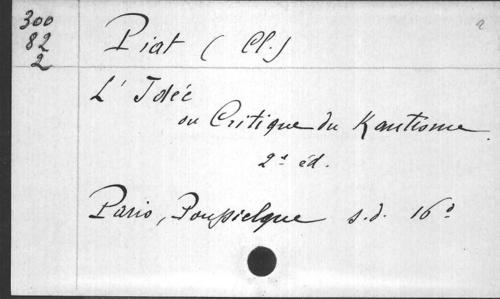 300
82
2
Piat (Cl.)
L'Idée
ou Critique du Kantisme.
2e éd.
Paris, Poussielgue s.d. 16°